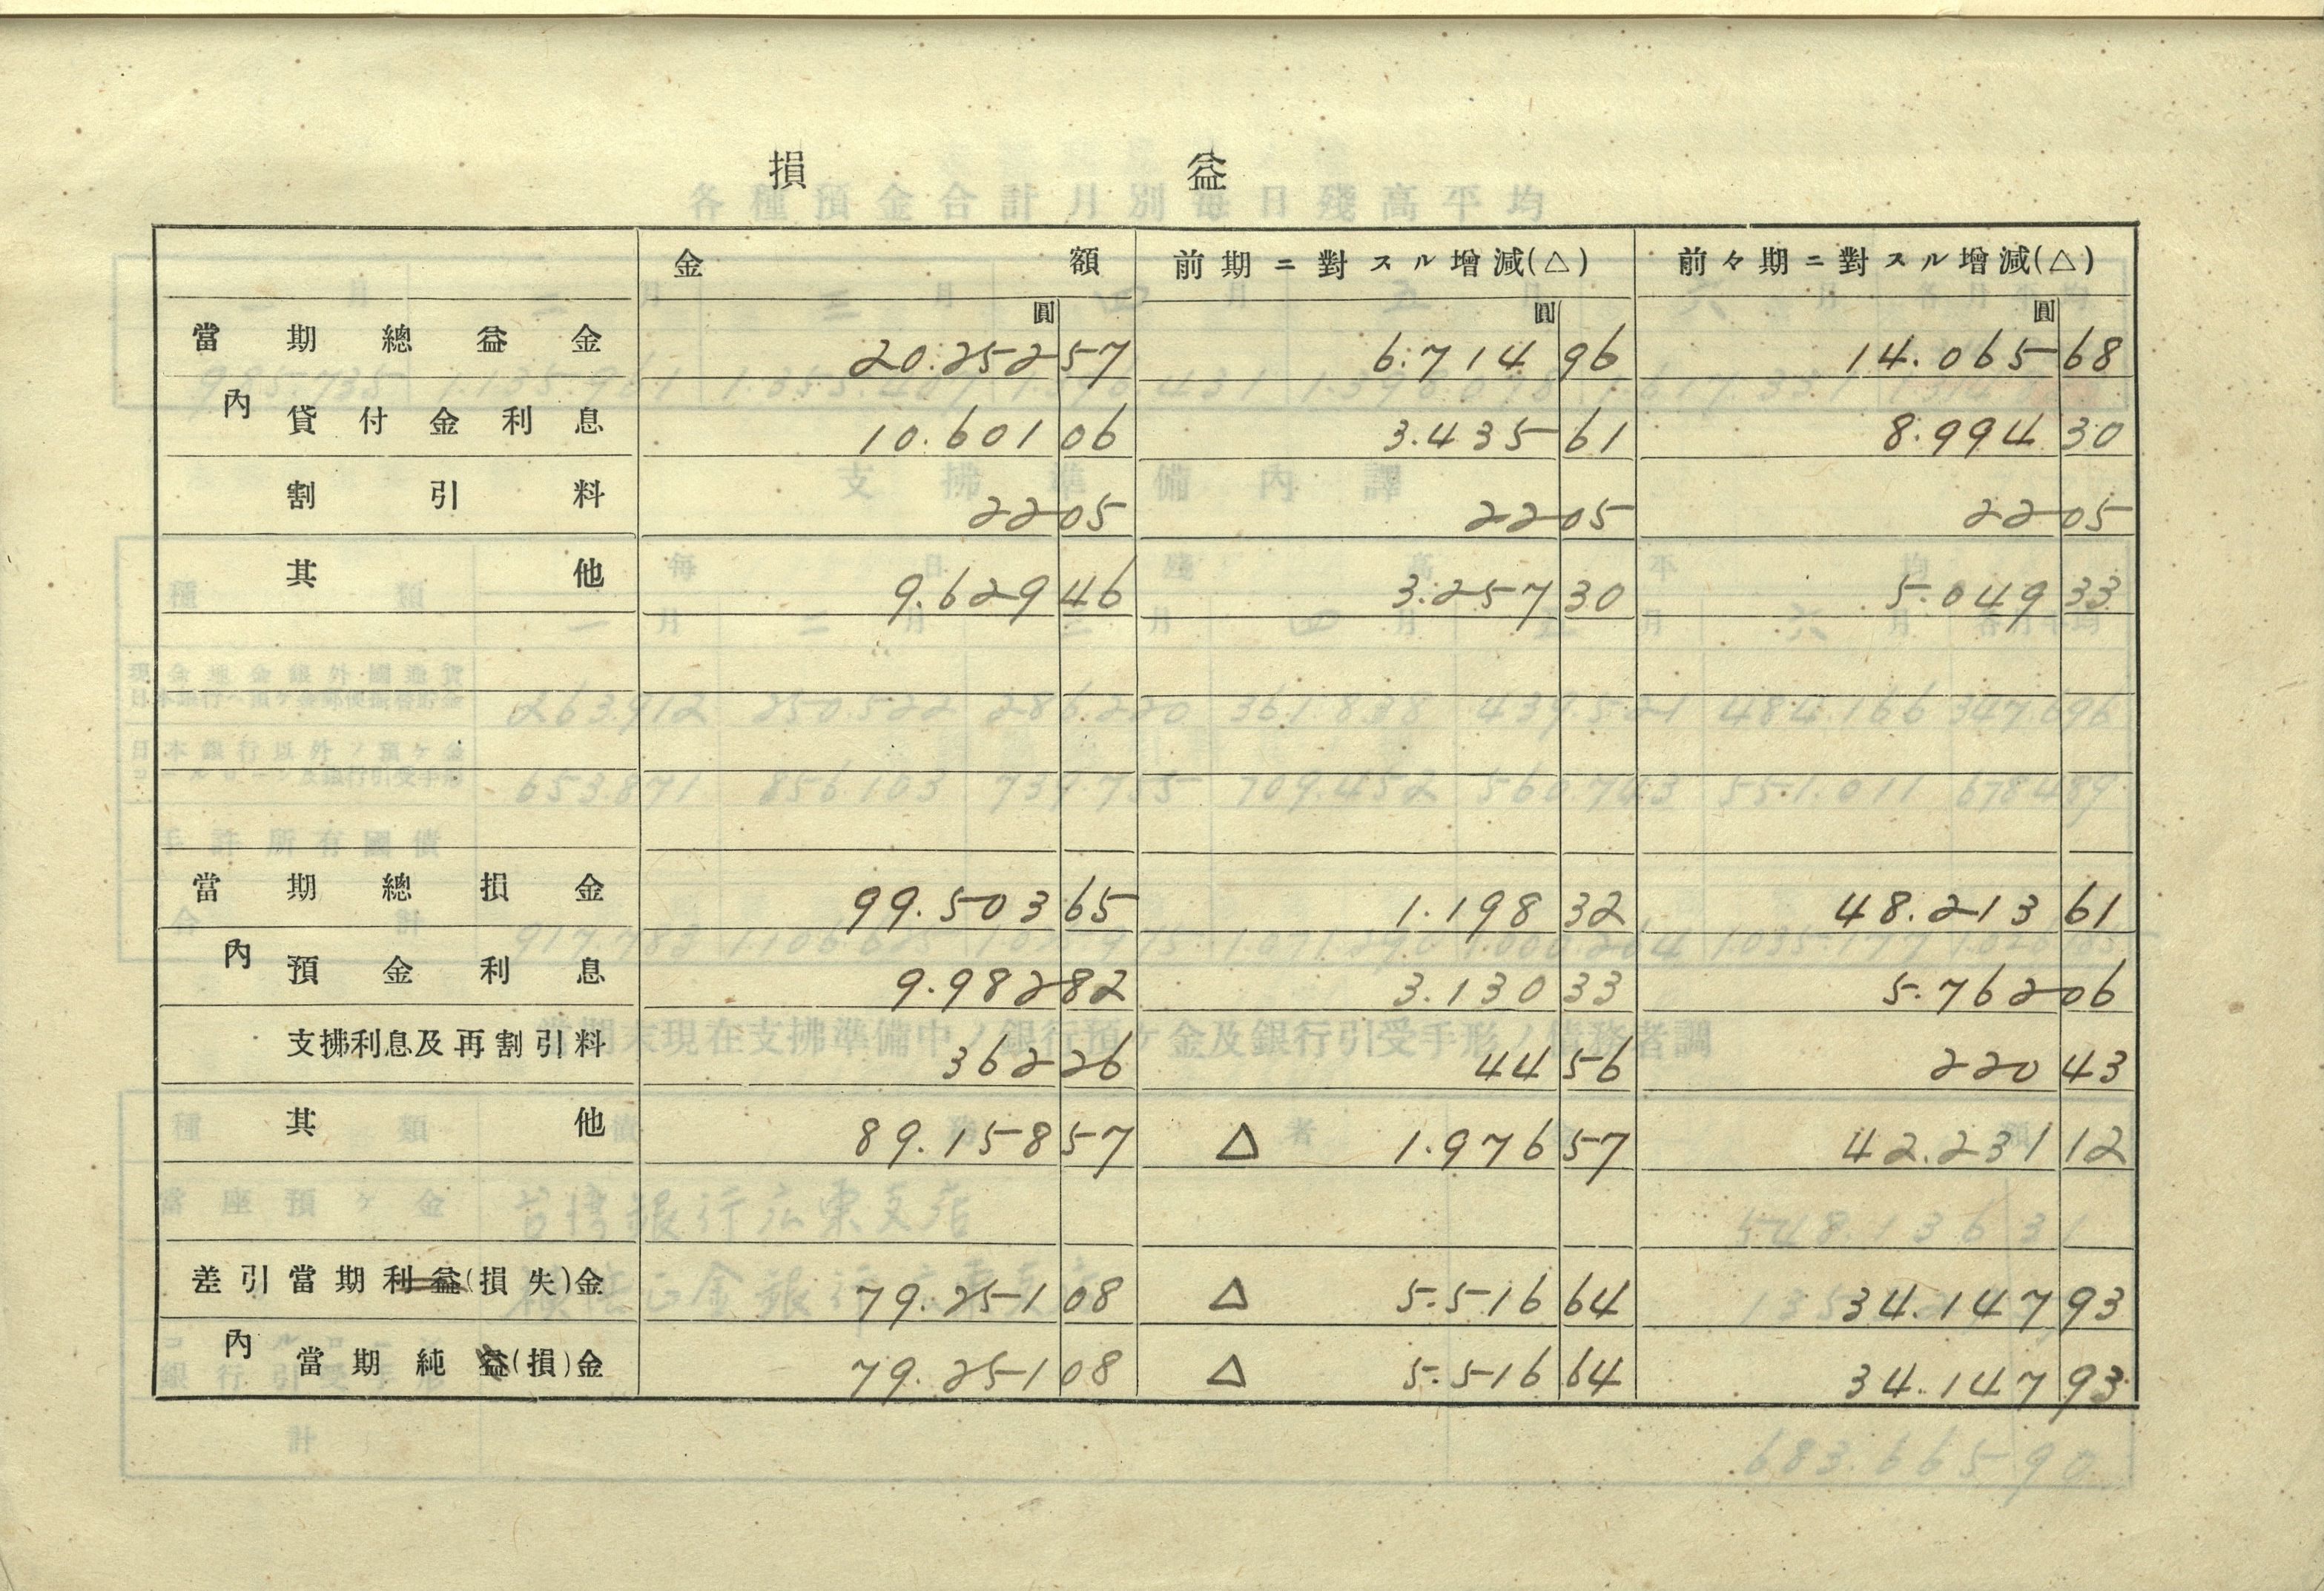 損 益
金 額 前期ニ對スル增減(△) 前々期ニ對スル增減(△)
圓 圓 圓
當期總益金 20.252 57 6.714 96 14.065 68
內 貸付金利息 10.601 06 3.435 61 8.994 30
割引料 22 05 22 05 22 05
其他 9.629 46 3.257 30 5.049 33
當期總損金 99.503 65 1.198 32 48.213 61
內 預金利息 9.982 82 3.130 33 5.762 06
支拂利息及再割引料 362 26 44 56 220 43
其他 89.158 57 △ 1.976 57 42.231 12
差引當期利益(損失)金 79.251 08 △ 5.516 64 34.147 93
內 當期純益(損)金 79.251 08 △ 5.516 64 34.147 93